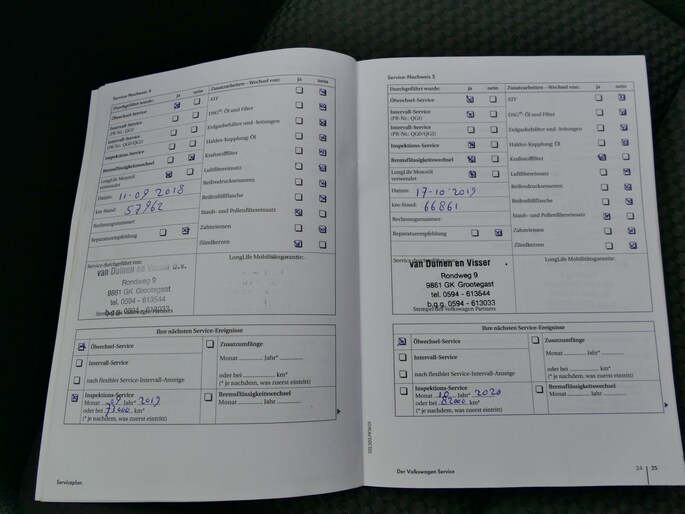 Service-Nachweis 4
Durchgeführt wurde: ja nein
Ölwechsel-Service
Intervall-Service
(PR-Nr.: QGI)
Intervall-Service
(PR-Nr.: QG0/QG2)
Inspektions-Service
Bremsflüssigkeitswechsel
LongLife Motoröl
verwendet
Datum: 11-09 2018
km-Stand: 57962
Rechnungsnummer:
Reparaturempfehlung
Zusatzarbeiten – Wechsel von: Ja nein
ATF
DSG®: Öl und Filter
Erdgasbehälter und -leitungen
Haldex-Kupplung: Öl
Kraftstofffilter
Luftfiltereinsatz
Reifendrucksensoren
Reifenfüllflasche
Staub- und Pollenfiltereinsatz
Zahnriemen
Zündkerzen
Service durchgeführt von:
van Duinen en Visser b.v.
Rondweg 9
9861 GK Grootegast
tel. 0594 - 613544
b.g.g. 0594 - 613033
Stempel des Volkswagen Partners
LongLife Mobilitätsgarantie:
Ihre nächsten Service-Ereignisse
Ölwechsel-Service
Intervall-Service
nach flexibler Service-Intervall-Anzeige
Inspektions-Service
Monat 09 Jahr* 2019
oder bei 73000 km*
(* je nachdem, was zuerst eintritt)
Zusatzumfänge
Monat Jahr*
oder bei km*
(* je nachdem, was zuerst eintritt)
Bremsflüssigkeitswechsel
Monat Jahr
Serviceplan
Service-Nachweis 5
Durchgeführt wurde: ja nein
Ölwechsel-Service
Intervall-Service
(PR-Nr.: QGI)
Intervall-Service
(PR-Nr.: QG0/QG2)
Inspektions-Service
Bremsflüssigkeitswechsel
LongLife Motoröl
verwendet
Datum: 17-10-2019
km-Stand: 66861
Rechnungsnummer:
Reparaturempfehlung
Zusatzarbeiten – Wechsel von: ja nein
ATF
DSG®: Öl und Filter
Erdgasbehälter und -leitungen
Haldex-Kupplung: Öl
Kraftstofffilter
Luftfiltereinsatz
Reifendrucksensoren
Reifenfüllflasche
Staub- und Pollenfiltereinsatz
Zahnriemen
Zündkerzen
Service durchgeführt von:
van Duinen en Visser
Rondweg 9
9861 GK Grootegast
tel. 0594 - 613544
b.g.g. 0594 - 613033
Stempel des Volkswagen Partners
LongLife Mobilitätsgarantie:
Ihre nächsten Service-Ereignisse
Ölwechsel-Service
Intervall-Service
nach flexibler Service-Intervall-Anzeige
Inspektions-Service
Monat 10 Jahr* 2020
oder bei 82000 km*
(* je nachdem, was zuerst eintritt)
Zusatzumfänge
Monat Jahr*
oder bei km*
(* je nachdem, was zuerst eintritt)
Bremsflüssigkeitswechsel
Monat Jahr
Der Volkswagen Service
24 25